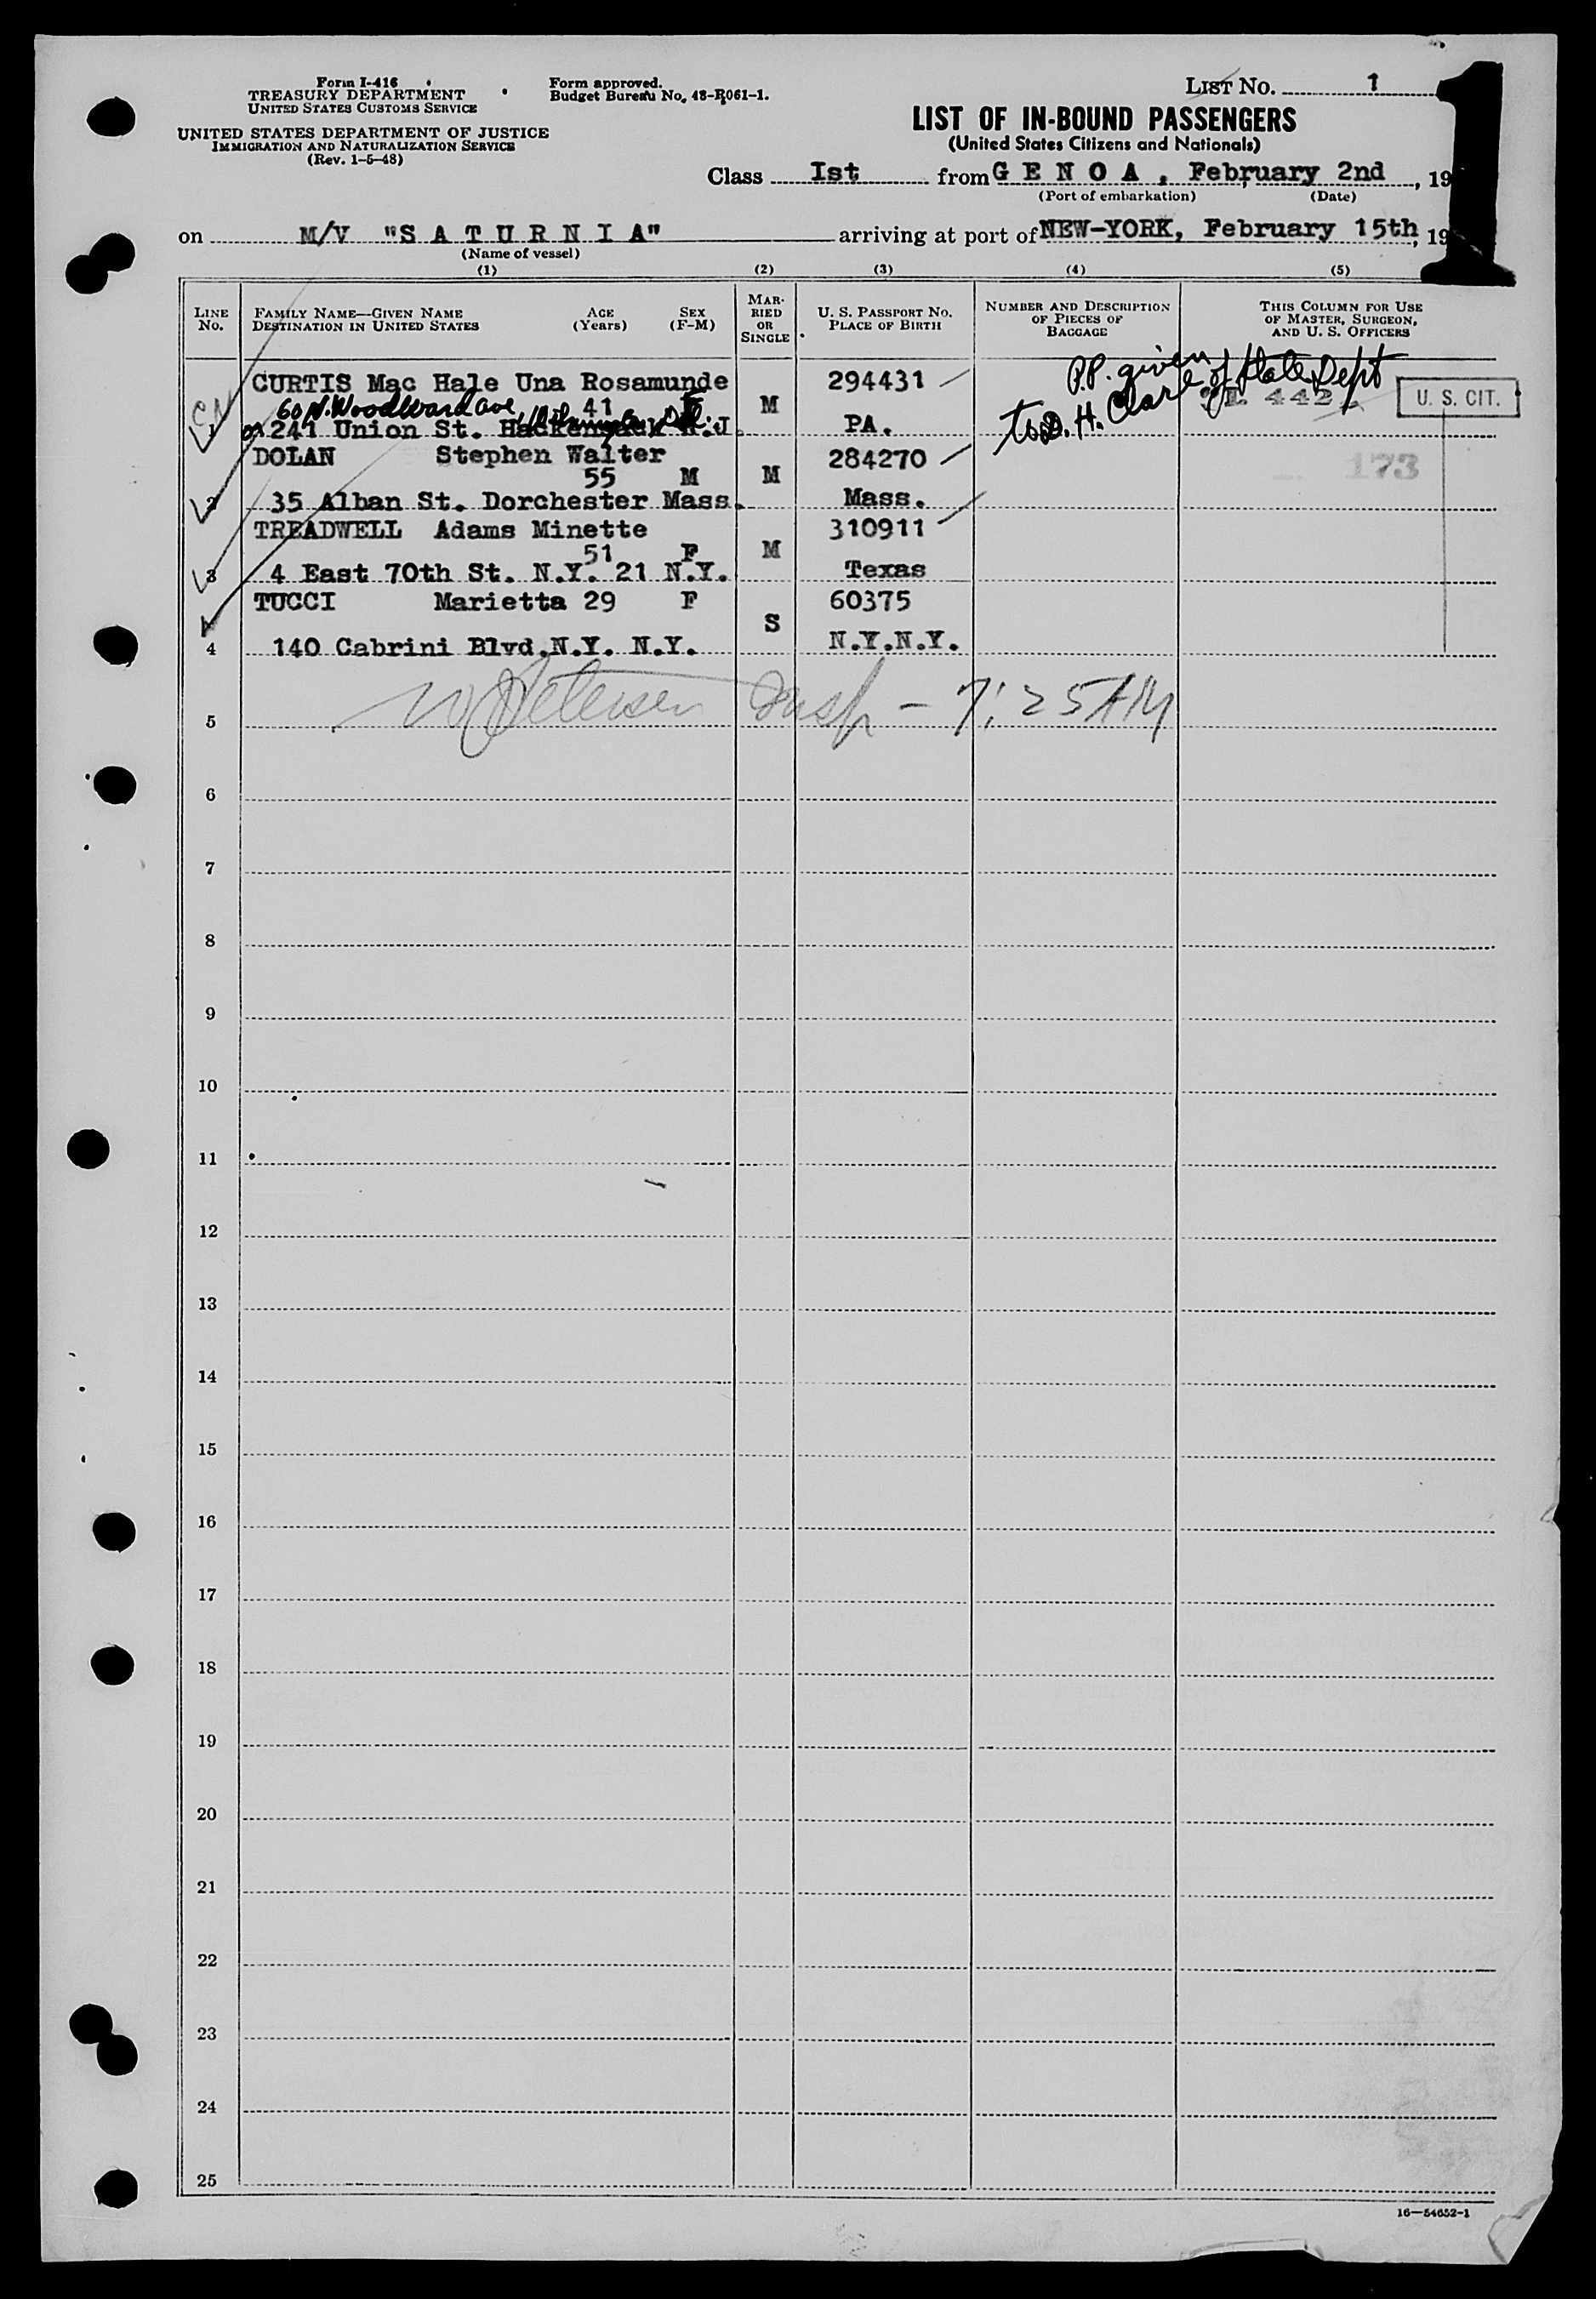 Form I-416
TREASURY DEPARTMENT
UNITED STATES CUSTOMS SERVICE
UNITED STATES DEPARTMENT OF JUSTICE
IMMIGRATION AND NATURALIZATION SERVICE
(Rev. 1-5-48)
Form approved.
Budget Bureau No. 43-R061-1.
LIST No. 1
1
LIST OF IN-BOUND PASSENGERS
(United States Citizens and Nationals)
Class Ist from G E N O A , February 2nd, 19
(Port of embarkation) (Date)
on M/V "S A T U R N I A" arriving at port of NEW-YORK, February 15th, 19
(Name of vessel)
(1) (2) (3) (4) (5)
LINE No.
FAMILY NAME—GIVEN NAME AGE (Years) SEX (F-M)
DESTINATION IN UNITED STATES
MARRIED OR SINGLE
U. S. PASSPORT NO.
PLACE OF BIRTH
NUMBER AND DESCRIPTION OF PIECES OF BAGGAGE
THIS COLUMN FOR USE OF MASTER, SURGEON, AND U. S. OFFICERS
CURTIS Mac Hale Una Rosamunde 294431 P.P. given
60 N. Woodward Ave, 41 F M to D. H. Clare of State Dept 442 U. S. CIT.
1 or 241 Union St. Hackensack N.J. PA.
DOLAN Stephen Walter 284270
55 M M 173
2 35 Alban St. Dorchester Mass. Mass.
TREADWELL Adams Minette 310911
51 F M
3 4 East 70th St. N.Y. 21 N.Y. Texas
TUCCI Marietta 29 F 60375
S
4 140 Cabrini Blvd.N.Y. N.Y. N.Y.N.Y.
Petersen Insp - 7:25 AM
5
6
7
8
9
10
11
12
13
14
15
16
17
18
19
20
21
22
23
24
25
16—54652-1